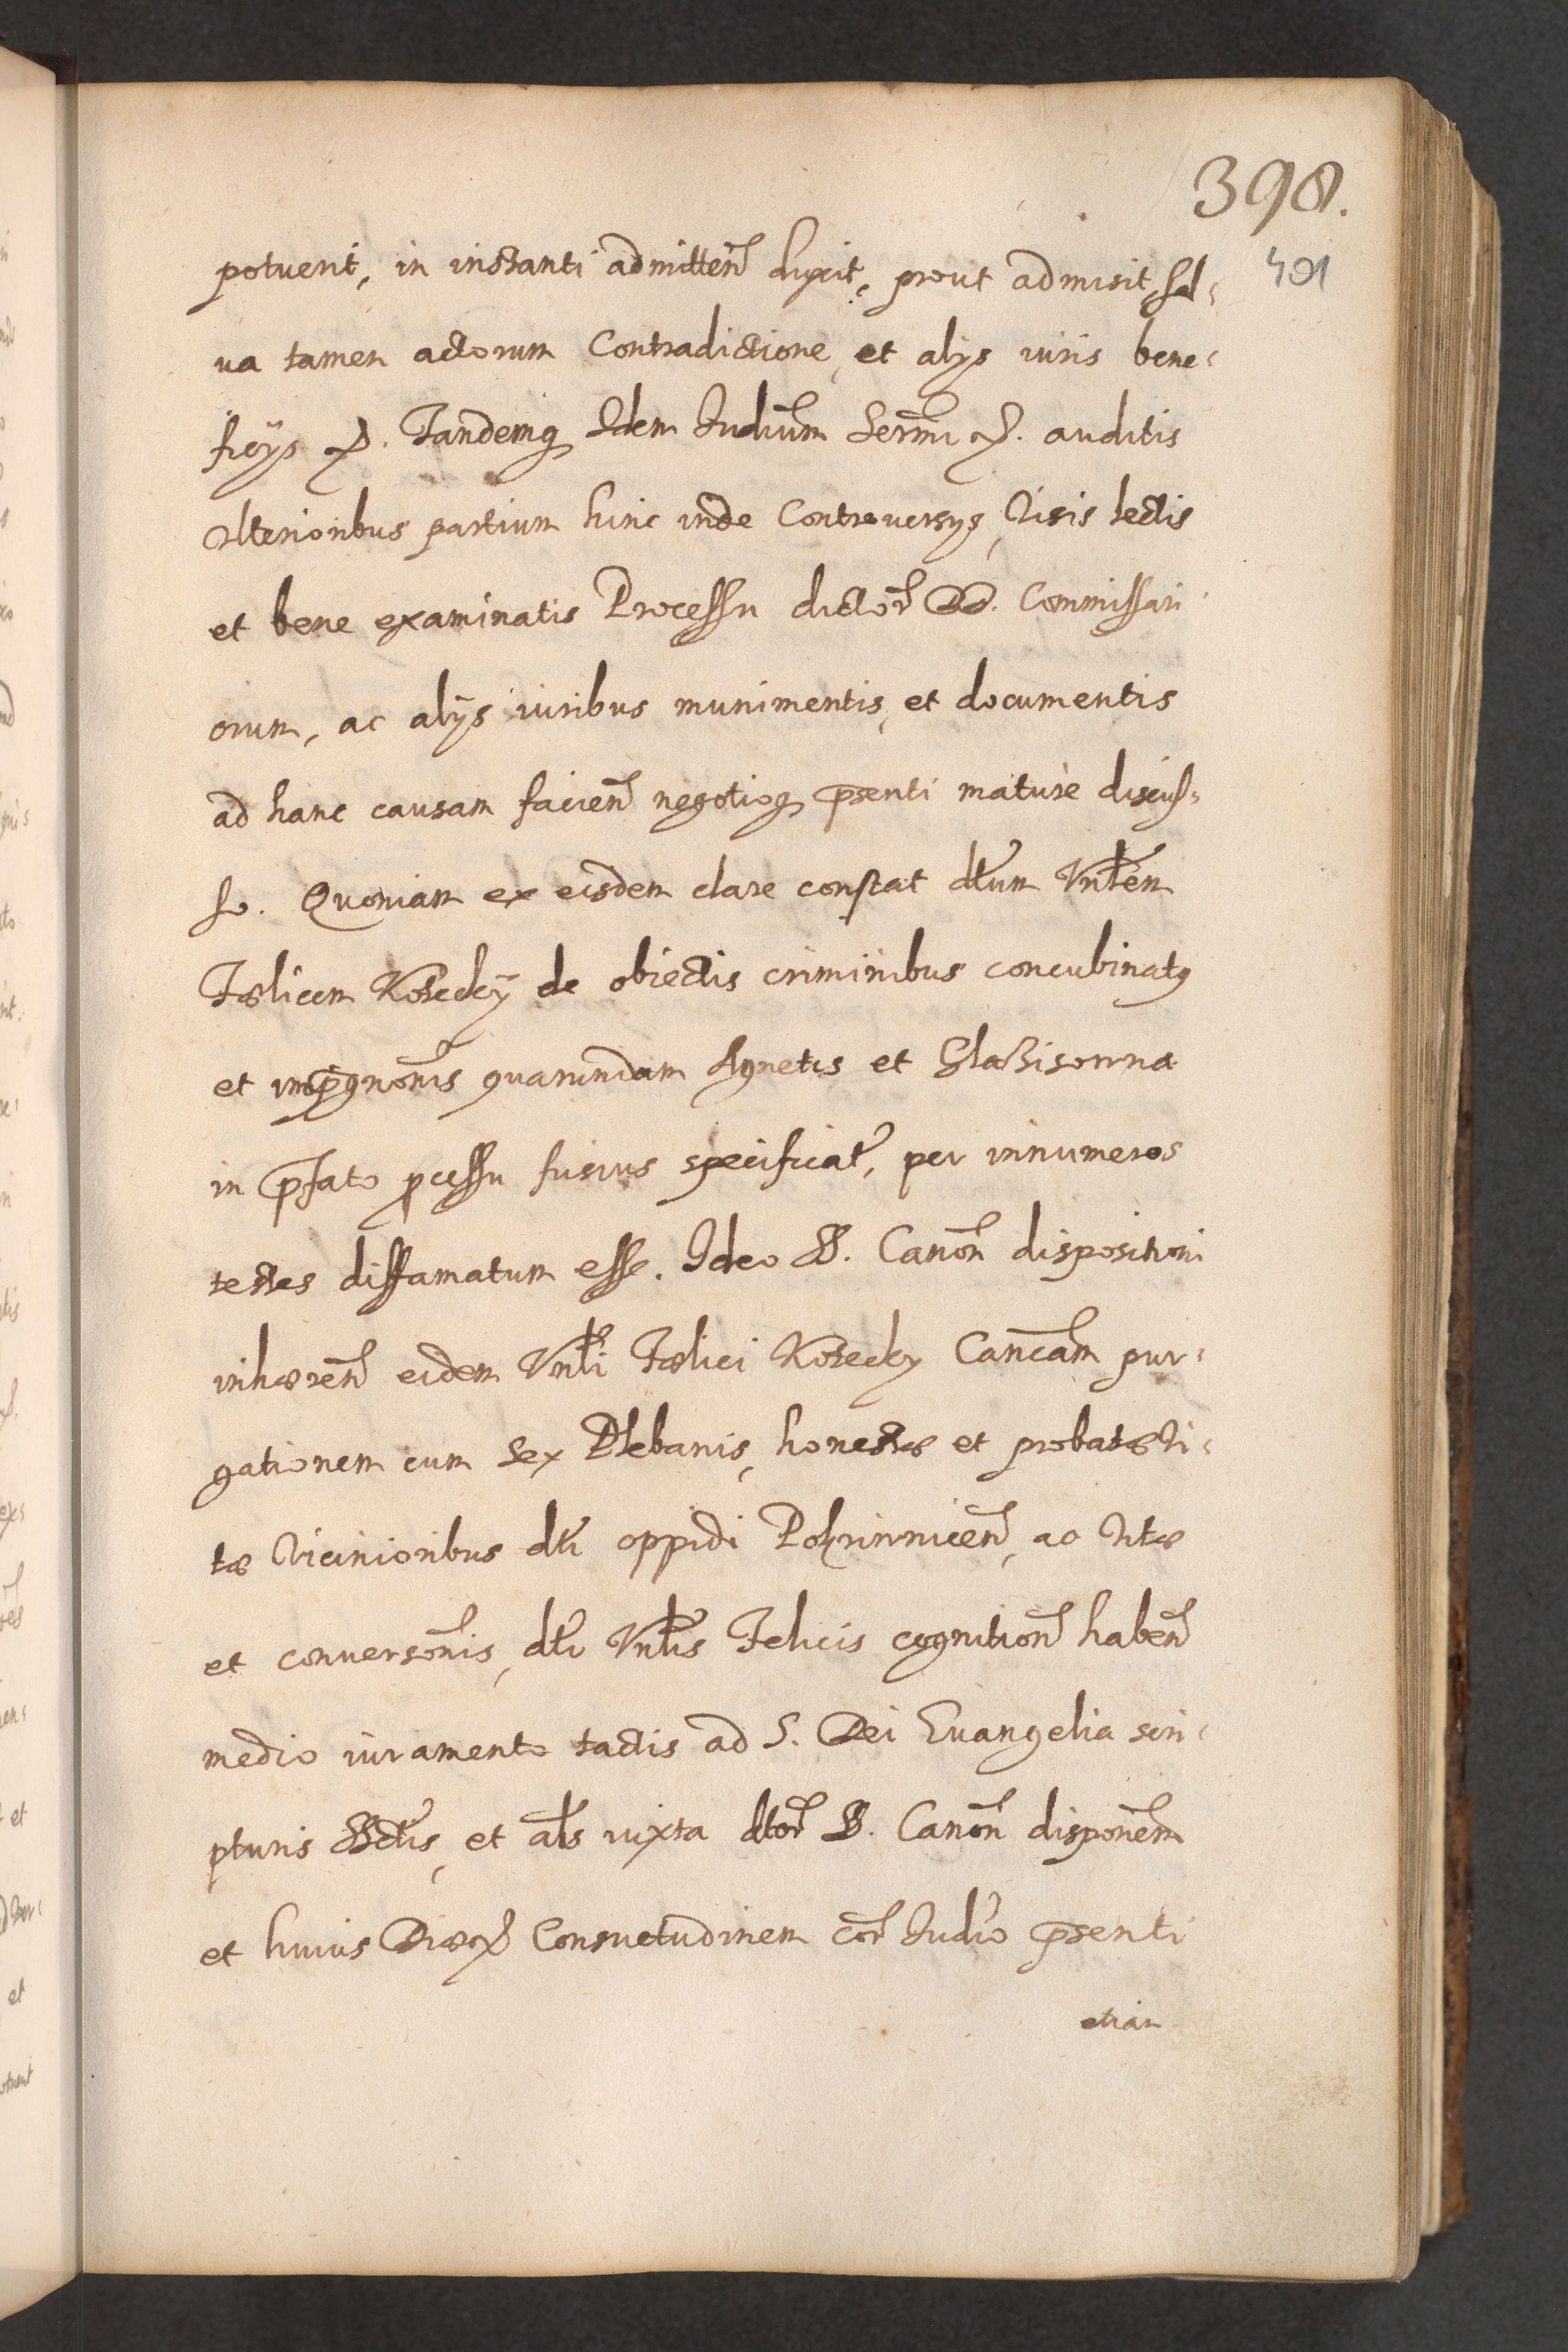 398.
401
potuerit, in instanti admitten̄ duxit, prout admisit, Sal-
ua tamen actorum Contradictione, et alijs iuris bene-
ficijs etc. Tandemq Idem Iudiu̅m Sermi etc. auditis
Vlterioribus partium hinc inde Controuersijs, Visis lectis
et bene examinatis Processu dictor̄ DD. Commissari
orum, ac alijs iuribus munimentis, et documentis
ad hanc causam facien̄ negotioq p̄senti maturè discus-
so. Quoniam ex eisdem clare constat dt̄um Vnlt̄em
Fælicem Kosecky de obiectis criminibus concubinatus
et imp̄gnōnis quarundam Agnetis et
in p̄fato p̄cessu fusius specificat̄, per innumeros
testes diffamatum esse. Ideo SS. Canōn dispositioni
inhæren̄ eidem Vnlī Fælici Kosecky Canc̄am pur-
gationem cum Sex Plebanis, honestæ et probatæ Vi-
tæ Vicinioribus dt̄i oppidi ac Vitæ
et conuersōnis, dt̄i Vnlīs Felicis cognition̄ haben̄
medio iuramento tactis ad S. Dei Euangelia scri-
pturis SSctīs, et alīs iuxta dtor̄ SS. Canōn disponēm
et huius Diæc Consuetudinem cor̄ Iudīo p̄senti
etiam